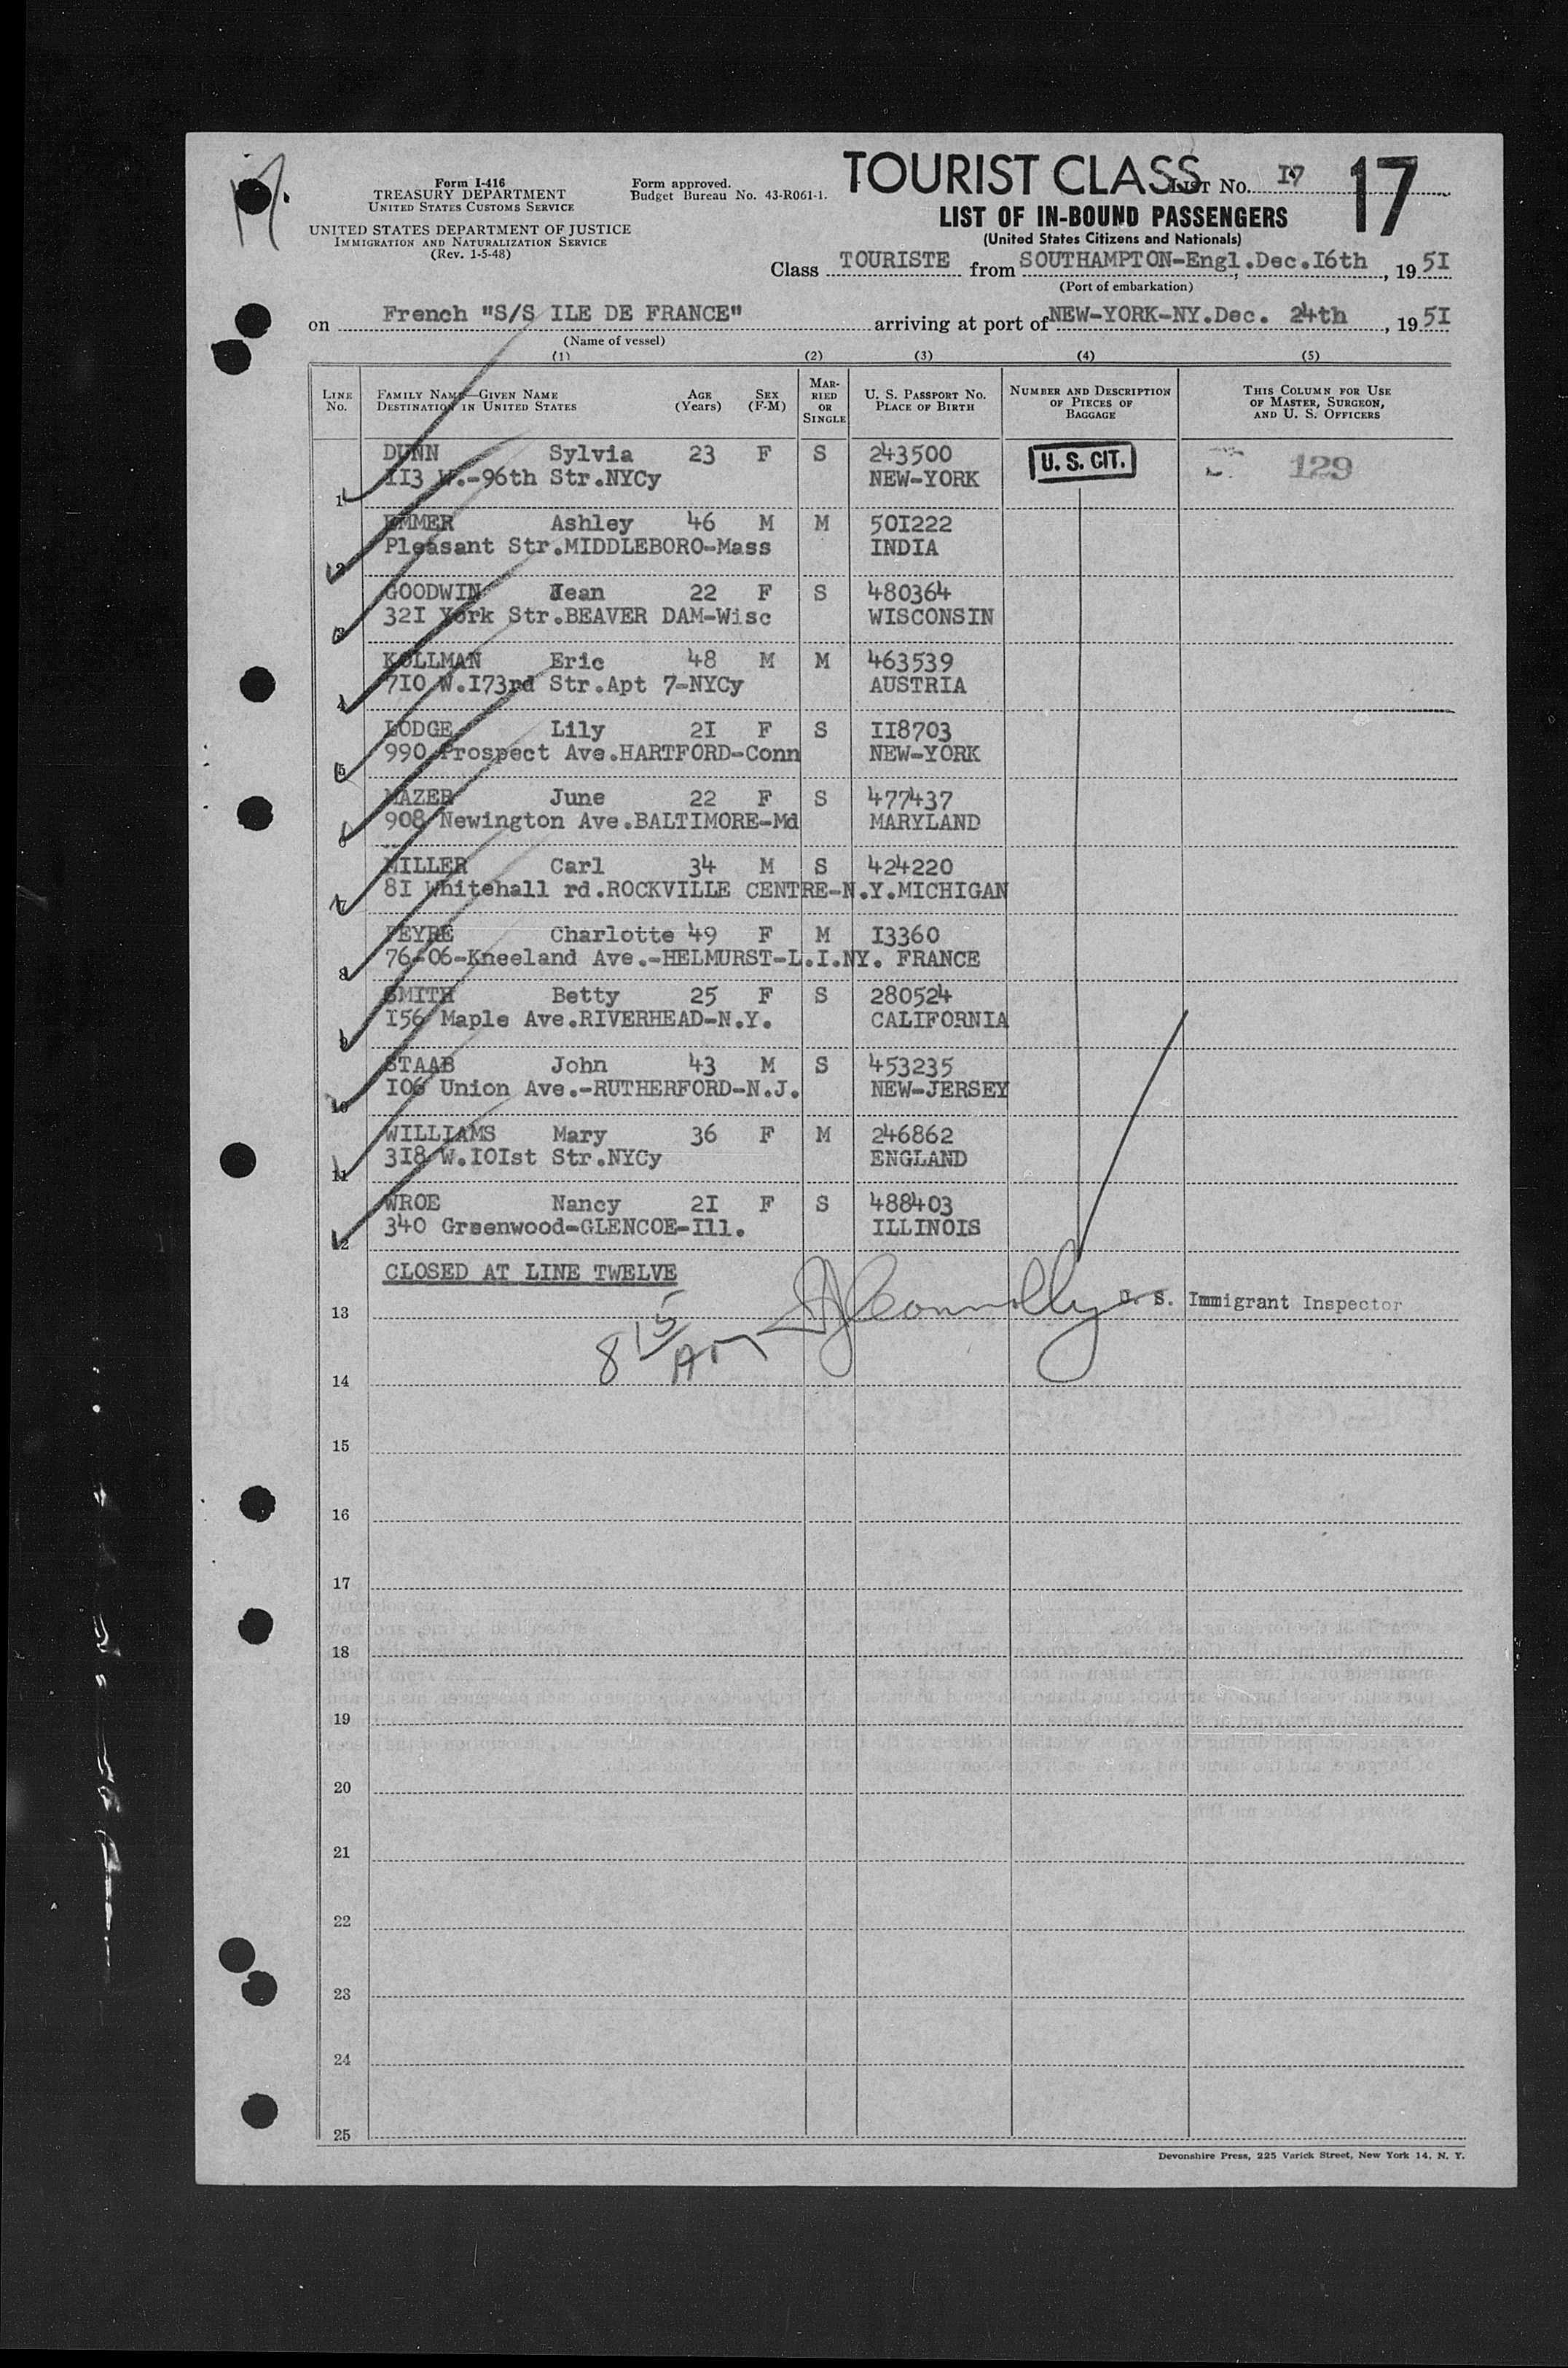 Form I-416
TREASURY DEPARTMENT
UNITED STATES CUSTOMS SERVICE
UNITED STATES DEPARTMENT OF JUSTICE
IMMIGRATION AND NATURALIZATION SERVICE
(Rev. 1-5-48)
Form approved.
Budget Bureau No. 43-R061-1.
TOURIST CLASS
LIST No. I7 17
LIST OF IN-BOUND PASSENGERS
(United States Citizens and Nationals)
Class TOURISTE from SOUTHAMPTON-Engl.Dec.I6th, 19 5I
(Port of embarkation)
on French "S/S ILE DE FRANCE" arriving at port of NEW-YORK-NY.Dec. 24th, 19 5I
(Name of vessel)
(1) (2) (3) (4) (5)
LINE No. FAMILY NAME—GIVEN NAME DESTINATION IN UNITED STATES AGE (Years) SEX (F-M) MARRIED OR SINGLE U. S. PASSPORT No. PLACE OF BIRTH NUMBER AND DESCRIPTION OF PIECES OF BAGGAGE THIS COLUMN FOR USE OF MASTER, SURGEON, AND U. S. OFFICERS
DUNN Sylvia 23 F S 243500 U. S. CIT. 129
1 II3 W.-96th Str.NYCy NEW-YORK
EMMER Ashley 46 M M 50I222
2 Pleasant Str.MIDDLEBORO-Mass INDIA
GOODWIN Jean 22 F S 480364
3 32I York Str.BEAVER DAM-Wisc WISCONSIN
KOLLMAN Eric 48 M M 463539
4 7IO W.I73rd Str.Apt 7-NYCy AUSTRIA
LODGE Lily 2I F S II8703
5 990 Prospect Ave.HARTFORD-Conn NEW-YORK
MAZER June 22 F S 477437
6 908 Newington Ave.BALTIMORE-Md MARYLAND
MILLER Carl 34 M S 424220
7 8I Whitehall rd.ROCKVILLE CENTRE-N.Y.MICHIGAN
PEYRE Charlotte 49 F M I3360
8 76-06-Kneeland Ave.-HELMURST-L.I.NY. FRANCE
SMITH Betty 25 F S 280524
9 I56 Maple Ave.RIVERHEAD-N.Y. CALIFORNIA
STAAB John 43 M S 453235
10 I06 Union Ave.-RUTHERFORD-N.J. NEW-JERSEY
WILLIAMS Mary 36 F M 246862
11 3I8 W.IOIst Str.NYCy ENGLAND
WROE Nancy 2I F S 488403
12 340 Greenwood-GLENCOE-Ill. ILLINOIS
CLOSED AT LINE TWELVE
13 Connolly U. S. Immigrant Inspector
8 15 AM
14
15
16
17
18
19
20
21
22
23
24
25
Devonshire Press, 225 Varick Street, New York 14, N. Y.